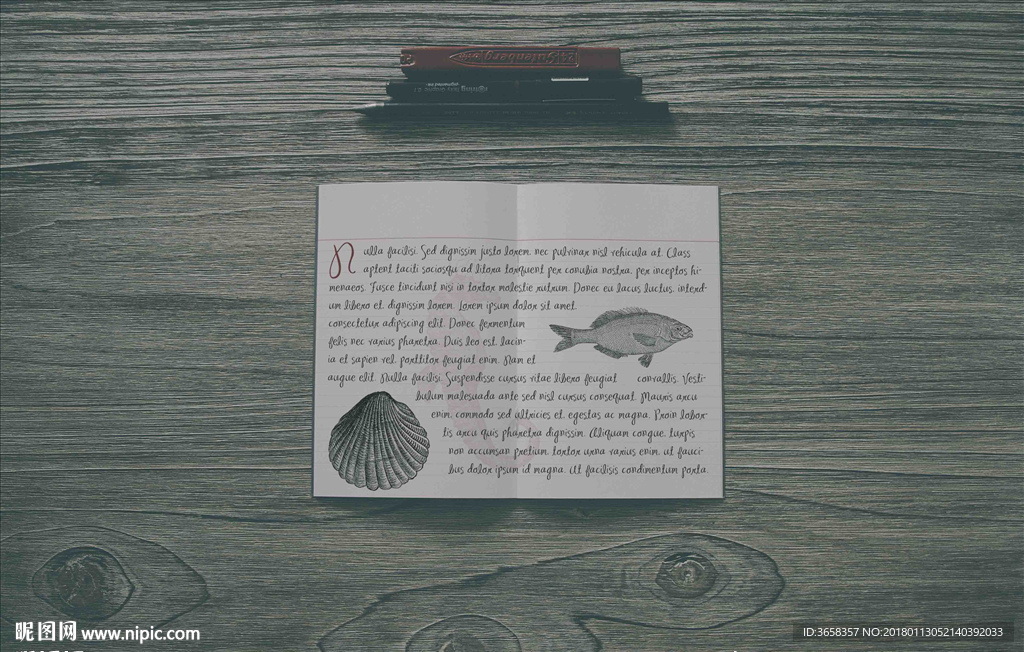 Gutenberg
Nulla facilisi. Sed dignissim justo lorem, nec pulvinar nisl vehicula at. Class
aptent taciti sociosqu ad litora torquent per conubia nostra, per inceptos hi-
menaeos. Fusce tincidunt nisi in tortor molestie rutrum. Donec eu lacus luctus, interd-
um libero et, dignissim lorem. Lorem ipsum dolor sit amet,
consectetur adipiscing elit. Donec fermentum
felis nec varius pharetra. Duis leo est, lacin-
ia et sapien vel, porttitor feugiat enim. Nam et
augue elit. Nulla facilisi. Suspendisse cursus vitae libero feugiat convallis. Vesti-
bulum malesuada ante sed nisl cursus consequat. Mauris arcu
enim, commodo sed ultricies et, egestas ac magna. Proin lobor-
tis arcu quis pharetra dignissim. Aliquam congue, turpis
non accumsan pretium, tortor urna varius enim, ut fauci-
bus dolor ipsum id magna. Ut facilisis condimentum porta.
昵图网 www.nipic.com
ID:3658357 NO:20180113052140392033